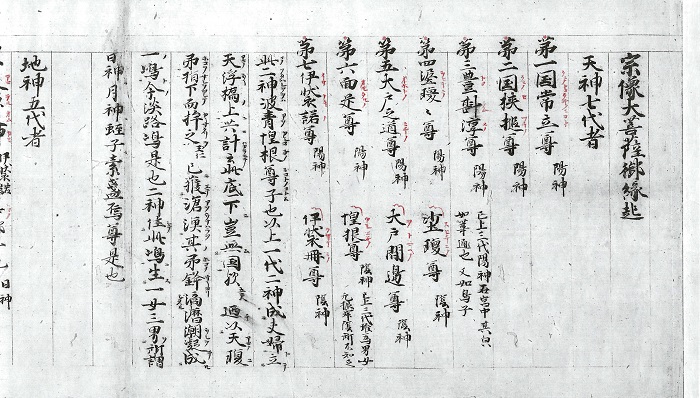 宗像大菩薩御縁起
天神七代者
第一国常立尊 陽神
第二国狭槌尊 陽神
第三豊斟渟尊 陽神
已上三代陽神在宮中其自
第四泥瓊々尊 陽神 沙瓊尊 陰神
第五大戸之道尊 陽神 大戸間邊尊 陰神
第六面足尊 陽神 惶根尊 陰神
第七伊弉諾尊 陽神 伊弉冊尊 陰神
此二神波青惶根尊子也以上一代二神成夫婦立
天浮橋上共計云此底下豈無国哉 廼以天瓊
矛指下而捋之 已獲滄溟其矛鋒滴瀝潮凝成
一嶋今淡路嶋是也二神住此嶋生一女三男所謂
日神月神蛭子素盞烏尊是也
地神五代者